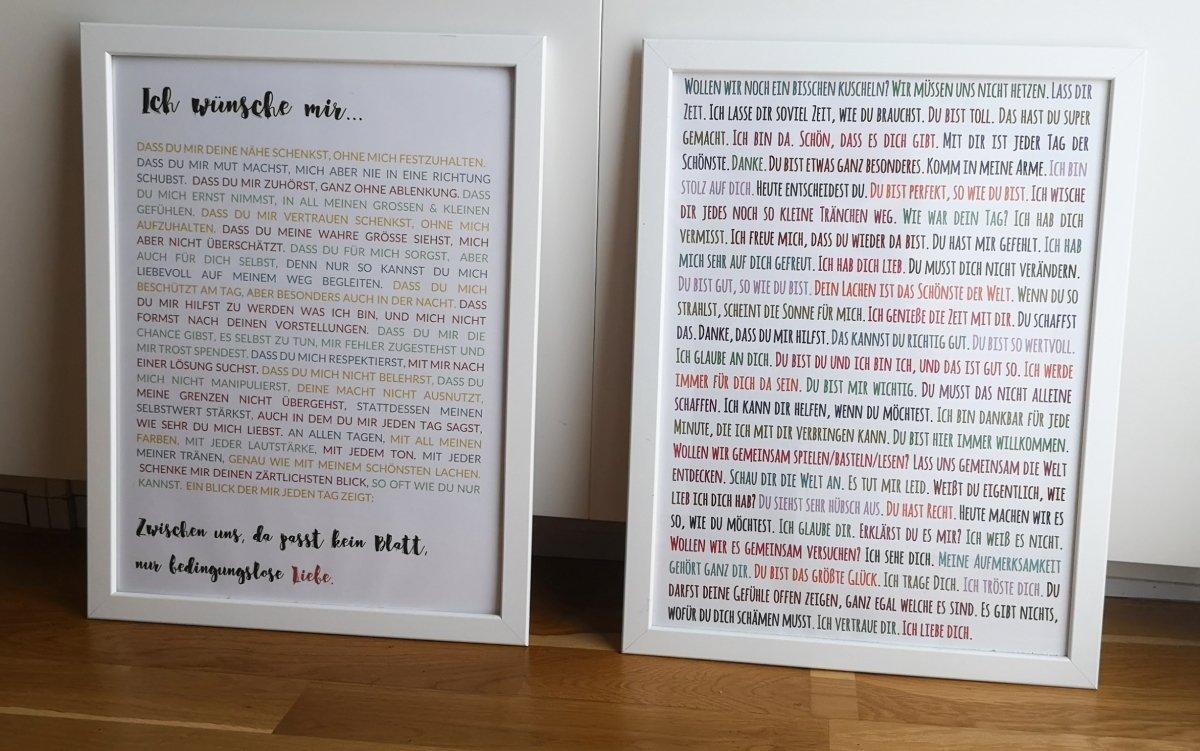 Ich wünsche mir...
DASS DU MIR DEINE NÄHE SCHENKST, OHNE MICH FESTZUHALTEN.
DASS DU MIR MUT MACHST, MICH ABER NIE IN EINE RICHTUNG
SCHUBST. DASS DU MIR ZUHÖRST, GANZ OHNE ABLENKUNG. DASS
DU MICH ERNST NIMMST, IN ALL MEINEN GROSSEN & KLEINEN
GEFÜHLEN. DASS DU MIR VERTRAUEN SCHENKST, OHNE MICH
AUFZUHALTEN. DASS DU MEINE WAHRE GRÖSSE SIEHST, MICH
ABER NICHT ÜBERSCHÄTZT. DASS DU FÜR MICH SORGST, ABER
AUCH FÜR DICH SELBST, DENN NUR SO KANNST DU MICH
LIEBEVOLL AUF MEINEM WEG BEGLEITEN. DASS DU MICH
BESCHÜTZT AM TAG, ABER BESONDERS AUCH IN DER NACHT. DASS
DU MIR HILFST ZU WERDEN WAS ICH BIN, UND MICH NICHT
FORMST NACH DEINEN VORSTELLUNGEN. DASS DU MIR DIE
CHANCE GIBST, ES SELBST ZU TUN, MIR FEHLER ZUGESTEHST UND
MIR TROST SPENDEST. DASS DU MICH RESPEKTIERST, MIT MIR NACH
EINER LÖSUNG SUCHST. DASS DU MICH NICHT BELEHRST, DASS DU
MICH NICHT MANIPULIERST, DEINE MACHT NICHT AUSNUTZT,
MEINE GRENZEN NICHT ÜBERGEHST, STATTDESSEN MEINEN
SELBSTWERT STÄRKST, AUCH IN DEM DU MIR JEDEN TAG SAGST,
WIE SEHR DU MICH LIEBST. AN ALLEN TAGEN, MIT ALL MEINEN
FARBEN, MIT JEDER LAUTSTÄRKE, MIT JEDEM TON. MIT JEDER
MEINER TRÄNEN, GENAU WIE MIT MEINEM SCHÖNSTEN LACHEN.
SCHENKE MIR DEINEN ZÄRTLICHSTEN BLICK, SO OFT WIE DU NUR
KANNST. EIN BLICK DER MIR JEDEN TAG ZEIGT:
Zwischen uns, da passt kein Blatt,
nur bedingungslose Liebe.
WOLLEN WIR NOCH EIN BISSCHEN KUSCHELN? WIR MÜSSEN UNS NICHT HETZEN. LASS DIR
ZEIT. ICH LASSE DIR SOVIEL ZEIT, WIE DU BRAUCHST. DU BIST TOLL. DAS HAST DU SUPER
GEMACHT. ICH BIN DA. SCHÖN, DASS ES DICH GIBT. MIT DIR IST JEDER TAG DER
SCHÖNSTE. DANKE. DU BIST ETWAS GANZ BESONDERES. KOMM IN MEINE ARME. ICH BIN
STOLZ AUF DICH. HEUTE ENTSCHEIDEST DU. DU BIST PERFEKT, SO WIE DU BIST. ICH WISCHE
DIR JEDES NOCH SO KLEINE TRÄNCHEN WEG. WIE WAR DEIN TAG? ICH HAB DICH
VERMISST. ICH FREUE MICH, DASS DU WIEDER DA BIST. DU HAST MIR GEFEHLT. ICH HAB
MICH SEHR AUF DICH GEFREUT. ICH HAB DICH LIEB. DU MUSST DICH NICHT VERÄNDERN.
DU BIST GUT, SO WIE DU BIST. DEIN LACHEN IST DAS SCHÖNSTE DER WELT. WENN DU SO
STRAHLST, SCHEINT DIE SONNE FÜR MICH. ICH GENIESSE DIE ZEIT MIT DIR. DU SCHAFFST
DAS. DANKE, DASS DU MIR HILFST. DAS KANNST DU RICHTIG GUT. DU BIST SO WERTVOLL.
ICH GLAUBE AN DICH. DU BIST DU UND ICH BIN ICH, UND DAS IST GUT SO. ICH WERDE
IMMER FÜR DICH DA SEIN. DU BIST MIR WICHTIG. DU MUSST DAS NICHT ALLEINE
SCHAFFEN. ICH KANN DIR HELFEN, WENN DU MÖCHTEST. ICH BIN DANKBAR FÜR JEDE
MINUTE, DIE ICH MIT DIR VERBRINGEN KANN. DU BIST HIER IMMER WILLKOMMEN.
WOLLEN WIR GEMEINSAM SPIELEN/BASTELN/LESEN? LASS UNS GEMEINSAM DIE WELT
ENTDECKEN. SCHAU DIR DIE WELT AN. ES TUT MIR LEID. WEISST DU EIGENTLICH, WIE
LIEB ICH DICH HAB? DU SIEHST SEHR HÜBSCH AUS. DU HAST RECHT. HEUTE MACHEN WIR ES
SO, WIE DU MÖCHTEST. ICH GLAUBE DIR. ERKLÄRST DU ES MIR? ICH WEISS ES NICHT.
WOLLEN WIR ES GEMEINSAM VERSUCHEN? ICH SEHE DICH. MEINE AUFMERKSAMKEIT
GEHÖRT GANZ DIR. DU BIST DAS GRÖSSTE GLÜCK. ICH TRAGE DICH. ICH TRÖSTE DICH. DU
DARFST DEINE GEFÜHLE OFFEN ZEIGEN, GANZ EGAL WELCHE ES SIND. ES GIBT NICHTS,
WOFÜR DU DICH SCHÄMEN MUSST. ICH VERTRAUE DIR. ICH LIEBE DICH.